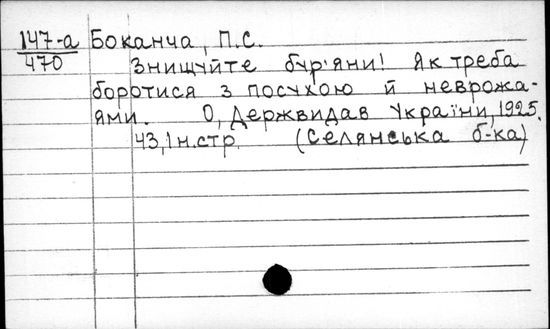 147-а Боканча, П.С.
470
Знищуйте бур'яни! Як треба
боротися з посухою й неврожа-
ями. О, Держвидав України, 1925.
43, 1 н.стр. (Селянська б-ка)